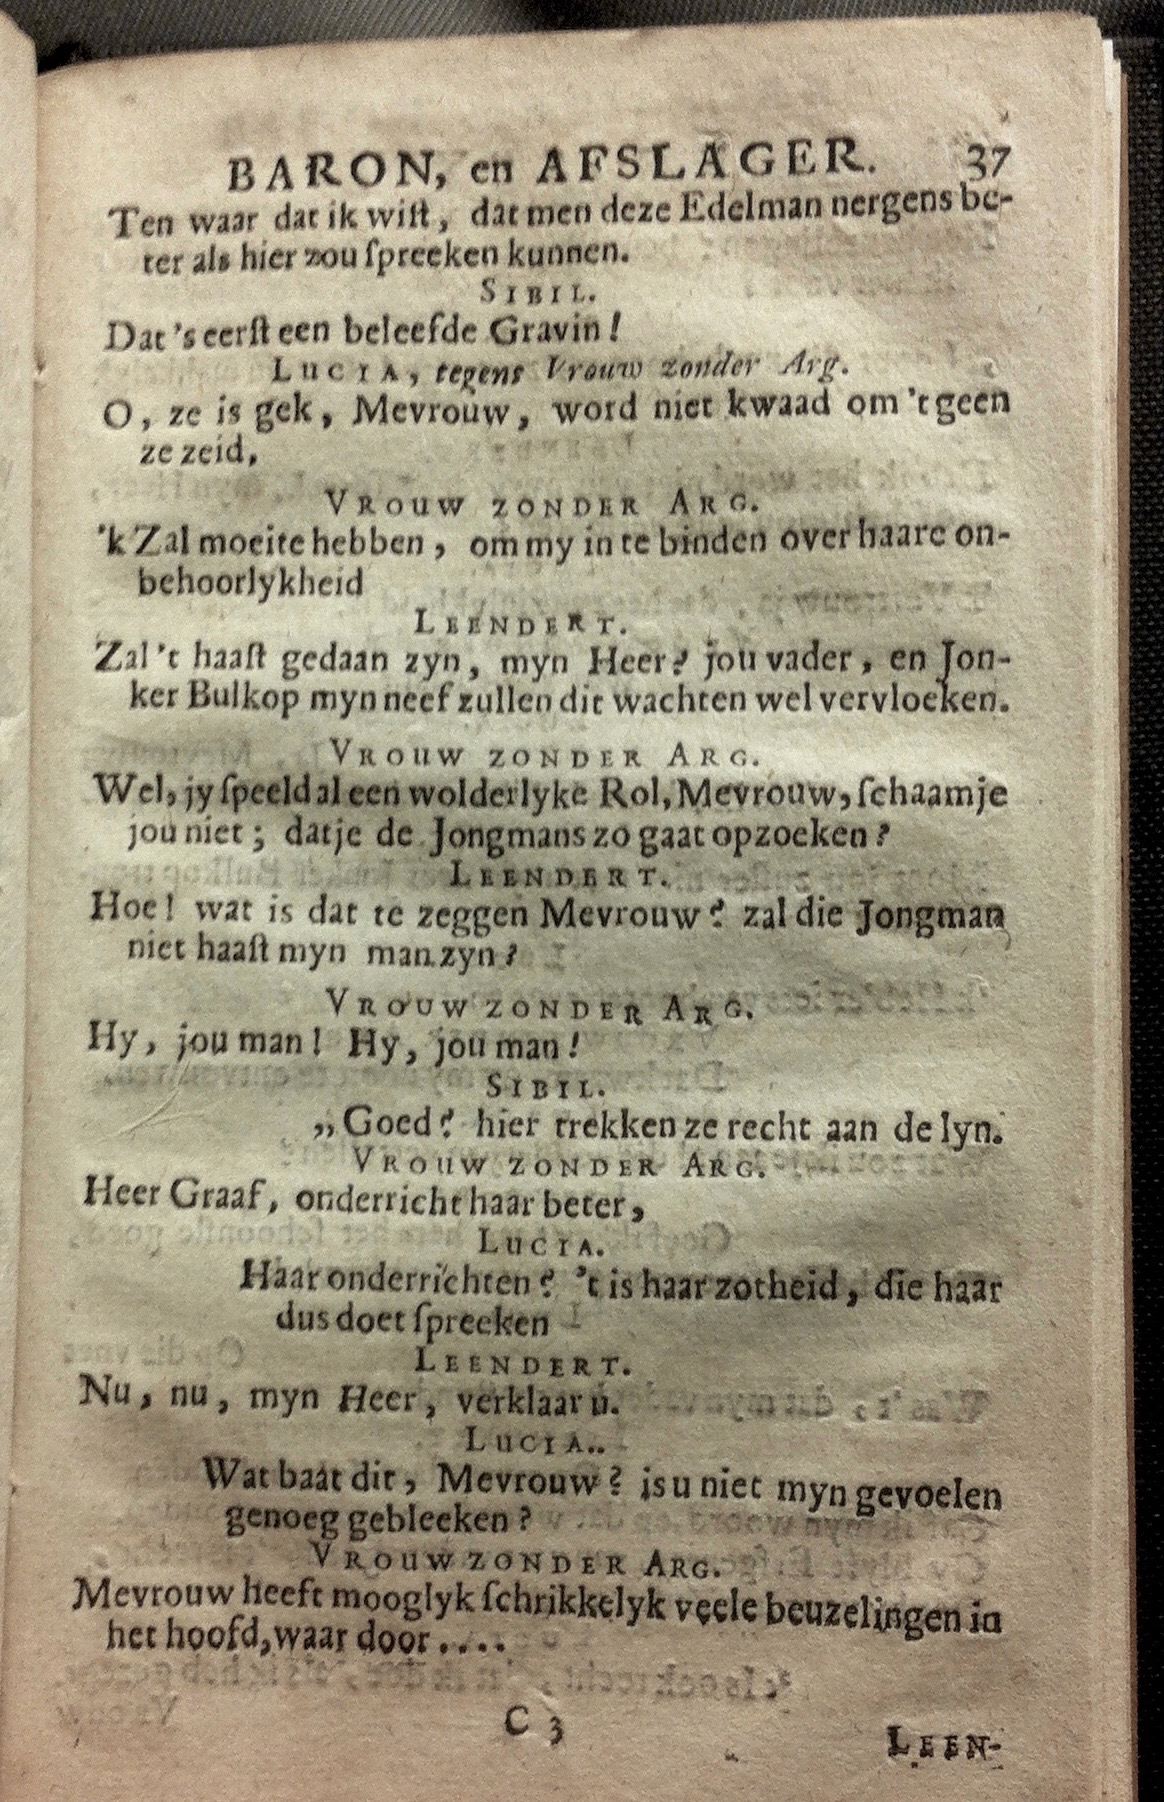 BARON, en AFSLAGER. 37
Ten waar dat ik wiſt, dat men deze Edelman nergens be-
ter als hier zou ſpreeken kunnen.
SIBIL.
Dat 's eerſt een beleefde Gravin!
LUCIA, tegens Vrouw zonder Arg.
O, ze is gek, Mevrouw, word niet kwaad om 't geen
ze zeid,
VROUW ZONDER ARG.
'k Zal moeite hebben, om my in te binden over haare on-
behoorlykheid
LEENDERT.
Zal 't haaſt gedaan zyn, myn Heer? jou vader, en Jon-
ker Bulkop myn neef zullen dit wachten wel vervloeken.
VROUW ZONDER ARG.
Wel, jy ſpeeld al een wolderlyke Rol, Mevrouw, ſchaamje
jou niet; datje de Jongmans zo gaat opzoeken?
LEENDERT.
Hoe! wat is dat te zeggen Mevrouw? zal die Jongman
niet haaſt myn man zyn?
VROUW ZONDER ARG.
Hy, jou man! Hy, jou man!
SIBIL.
„Goed? hier trekken ze recht aan de lyn.
VROUW ZONDER ARG.
Heer Graaf, onderricht haar beter,
LUCIA.
Haar onderrichten? 't is haar zotheid, die haar
dus doet ſpreeken
LEENDERT.
Nu, nu, myn Heer, verklaar u.
LUCIA..
Wat baat dit, Mevrouw? is u niet myn gevoelen
genoeg gebleeken?
VROUW ZONDER ARG.
Mevrouw heeft mooglyk ſchrikkelyk veele beuzelingen in
het hoofd, waar door....
C 3
LEEN-